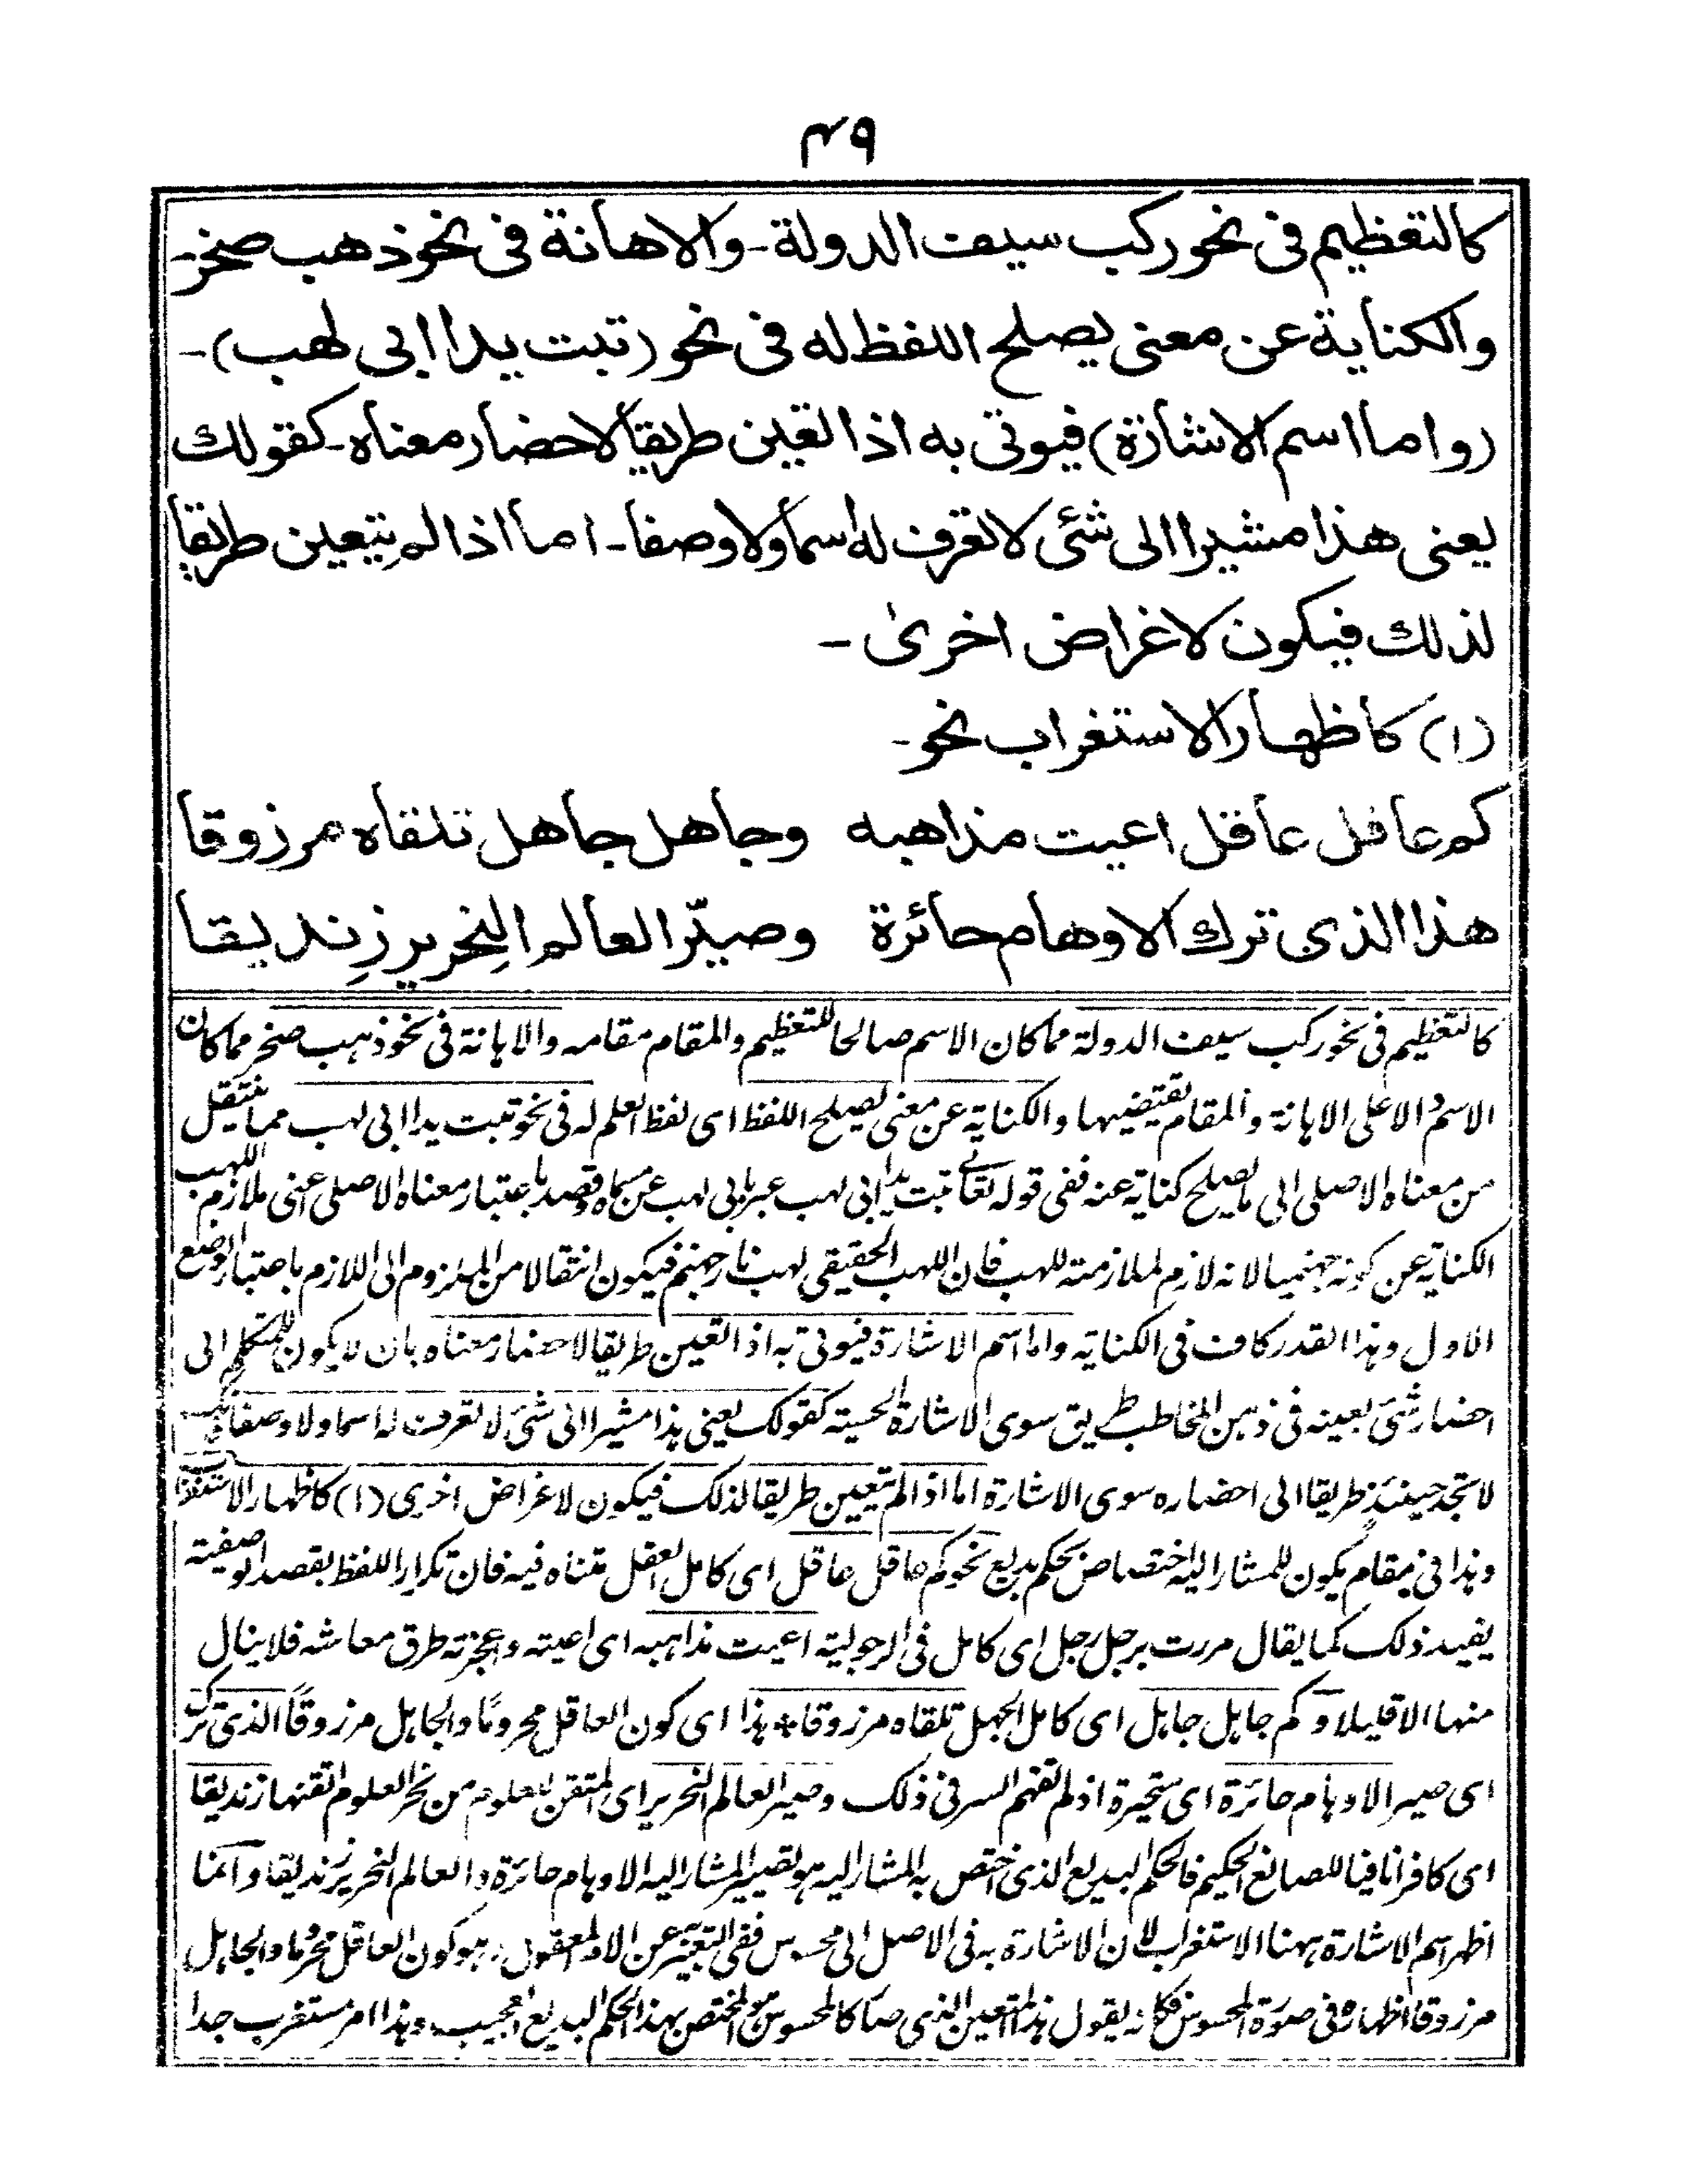 ۴۹
كالتعظيم فى نحو ركب سيف الدولة - والاهانة فى نحو ذهب صخر -
والكناية عن معنى يصلح اللفظ له فى نحو (تبت يدا ابى لهب) -
(واما اسم الاشارة) فيوتى به اذا تعين طريقا لاحضار معناه - كقولك
يعنى هذا مشيرا الى شئى لا تعرف له اسما ولا وصفا - اما اذا لم يتعين طريقا
لذلك فيكون لاغراض اخرىٰ -
(١) كاظهار الاستغراب نحو -
كم عاقل عاقل اعيت مذاهبه وجاهل جاهل تلقاه مرزوقا
هذا الذى ترك الاوهام حائرة وصيّر العالم النِحرير زِنديقا
كالتعظيم فى نحو ركب سيف الدولة مما كان الاسم صالحا للتعظيم والمقام مقامه والاہانة فى نحو ذہب صخر مما كان
الاسم دالا على الاہانة والمقام يقتضيہا والكناية عن معنى يصلح اللفظ اى لفظ العلم له فى نحو تبت يدا ابى لہب مما ينتقل
من معناه الاصلى الى ما يصلح كناية عنه ففى قوله تعالے تبت يدا ابى لہب عبر بابى لہب عن مسماه وقصد باعتبار معناه الاصلى اعنى ملازم اللہب
الكناية عن كونه جہنميا لانه لازم لملازمته للہب فان اللہب الحقيقى لہب نار جہنم فيكون انتقالا من الملزوم الى اللازم باعتبار الوضع
الاول وہذا القدر كاف فى الكناية واما اسم الاشارة فيوتى به اذا تعين طريقا لاحضار معناه بان لا يكون للمتكلم الى
احضار شئ بعينه فى ذہن المخاطب طريق سوى الاشارة الحسية كقولك يعنى ہذا مشيرا الى شئ لا تعرف له اسما ولا وصفا
لا تجد حينئذ طريقا الى احضاره سوى الاشارة اما اذا لم يتعين طريقا لذلك فيكون لاغراض اخرى (١) كاظہار الاستغراب
وہذا فى مقام يكون للمشار اليه اختصاص بحكم بديع نحو كم عاقل عاقل اى كامل العقل متناه فيه فان تكرار اللفظ بقصد الوصفية
يفيد ذلك كما يقال مررت برجل رجل اى كامل فى الرجولية اعيت مذاہبه اى اعيته وعجزته طرق معاشه فلا ينال
منہا الا قليلا وكم جاہل جاہل اى كامل الجہل تلقاه مرزوقا * ہذا اى كون العاقل محروما والجاہل مرزوقاً الذى ترك
اى صير الاوہام حائرة اى متحيرة اذ لم تفہم السر فى ذلك وصير العالم النحرير اى المتقن للعلوم من نحر العلوم اتقنہا زنديقا
اى كافرا نافيا للصانع الحكيم فالحكم البديع الذى اختص به المشار اليه ہو تصيير المشار اليه الاوہام حائرة والعالم النحرير زنديقا وانما
اظہر اسم الاشارة ہہنا الاستغراب لان الاشارة به فى الاصل الى محسوس ففى التعبير عن الامر المعقول وہو كون العاقل محروما والجاہل
مرزوقا اظہاره فى صورة المحسوس فكانه يقول ہذا المتعين الذى صار كالمحسوس ہو المختص بہذا الحكم البديع العجيب وہذا امر مستغرب جدا